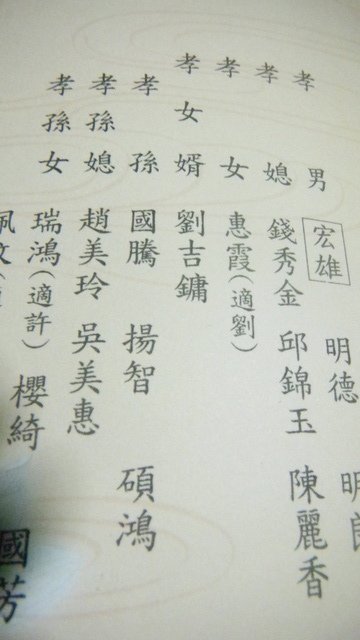 孝男 宏雄 明德 明
孝媳 錢秀金 邱錦玉 陳麗香
孝女 惠霞(適劉)
孝女婿 劉吉鏞
孝孫 國騰 揚智 碩鴻
孝孫媳 趙美玲 吳美惠
孝孫女 瑞鴻(適許) 櫻綺 國芳